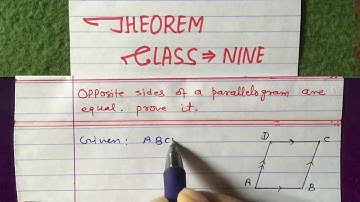 THEOREM
CLASS ⇒ NINE
Opposite sides of a parallelogram are
equal. prove it.
Given: ABC
D C
A B